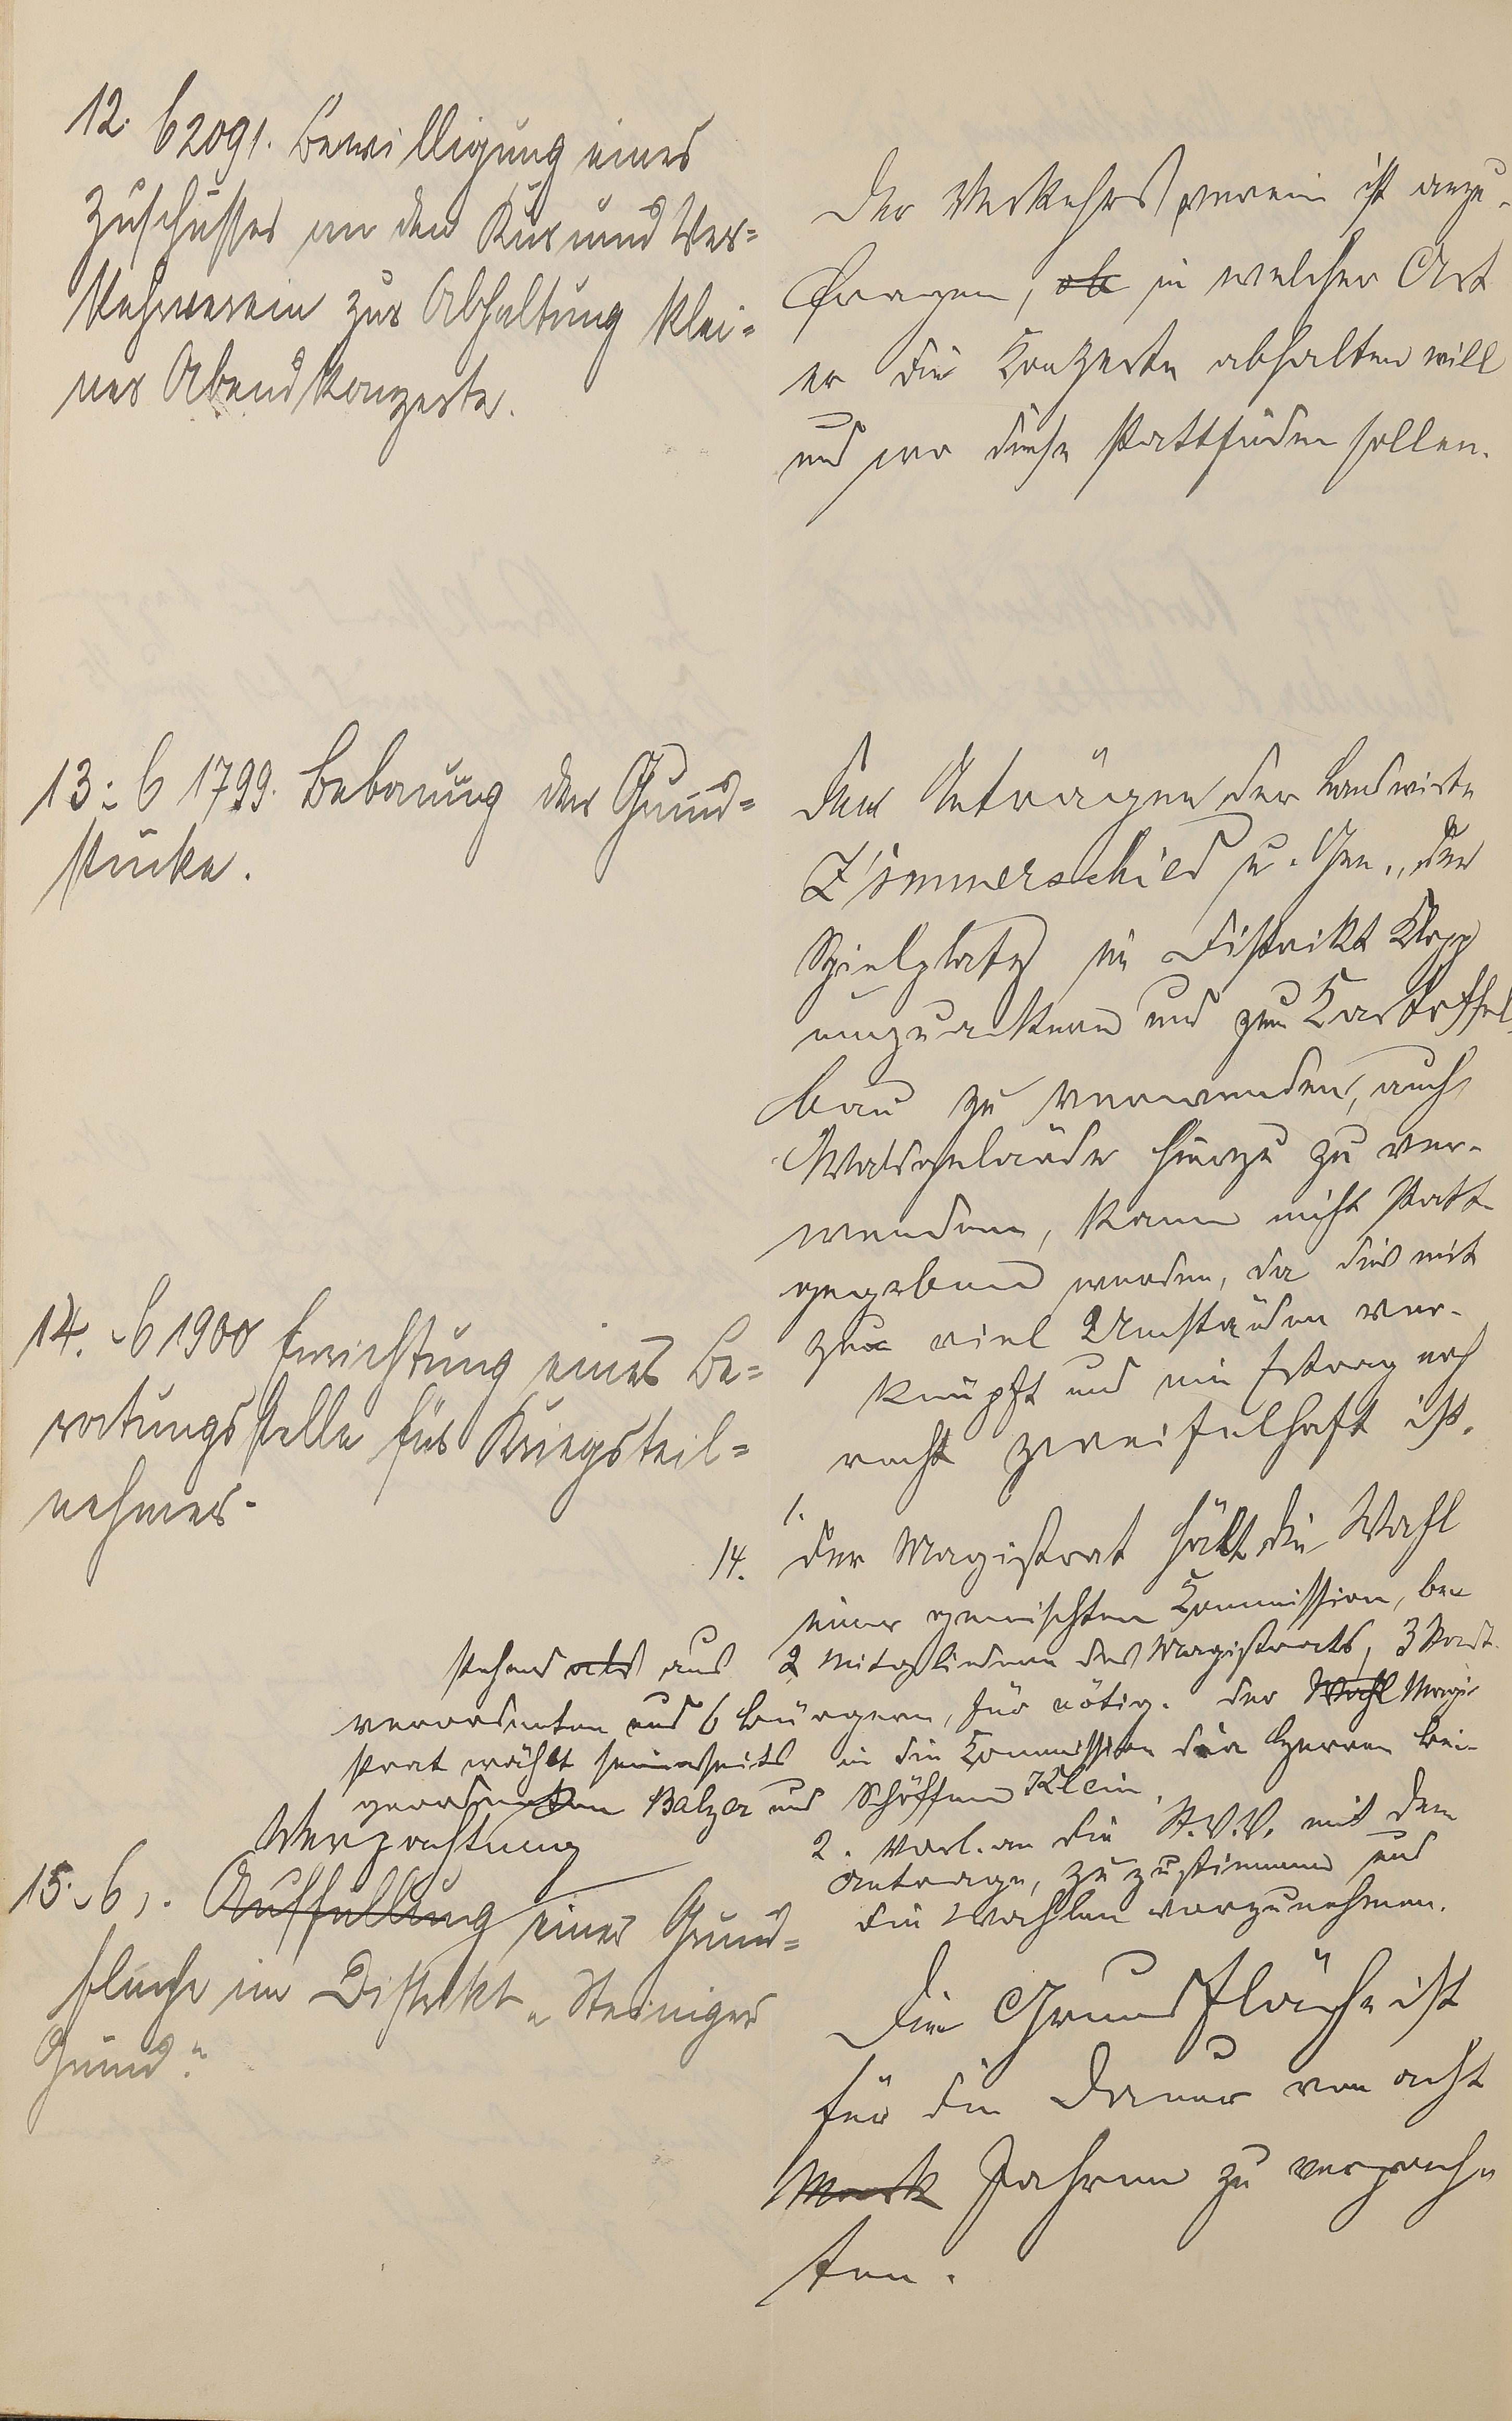 12. b 2091. Bewilligung eines
Zuschusses an den Kur und Ver=
kehrverein zur Abhaltung klei=
ner Abendkonzerte.
Der Verkehrsverein ist anzu-
fragen, ob in welcher Art
er die Konzerte abhalten will
und wo diese stattfinden sollen.
13. b 1799. Bebauung der Grund=
stücke.
Den Anträgen der Landwirte
Zimmerschied u. Gen., den
Spielplatz im Distrikt Klopp
umzuackern und zum Kartoffel
bau zu verwenden, auch
Waldgelände hierzu zu ver-
wenden, kann nicht statt
gegeben werden, da dies mit
zu viel Umständen ver-
knüpft und ein Ertrag noch
recht zweifelhaft ist.
14. b 1900 Errichtung einer Be=
ratungsstelle für Kriegsteil=
nehmer.
1.
14. Der Magistrat hält die Wahl
einer gemischten Kommission, be-
stehend als aus 2 Mitgliedern des Magistrats, 3 Stadt-
verordneten und 6 Bürgern, für nötig. Der Wahl Magi-
strat wählt seinerseits in die Kommission die Herren Bei-
geordneten Balzer und Schöffen Klein.
2. Vorl. an die St.V.V. mit dem
Antrage, zuzustimmen und
die Wahlen vorzunehmen.
Verpachtung
15. b,. Auffüllung einer Grund=
fläche im Distrikt „Steiniger
Grund."
Die Grundfläche ist
für die Dauer von acht
Mark Jahren zu verpach-
ten.